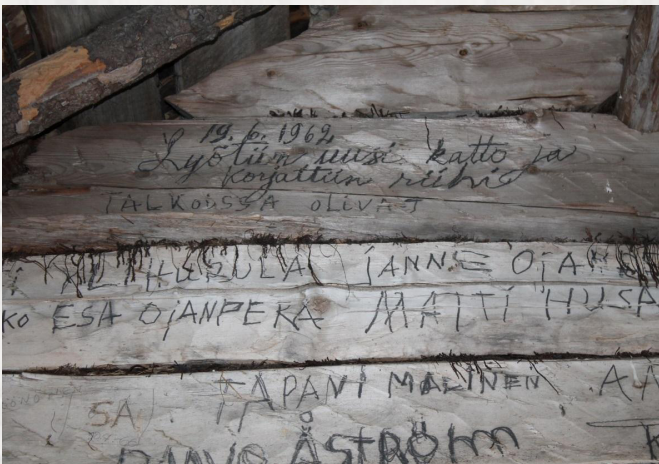 19. 6. 1962
Lyötiin uusi katto ja
korjattiin riihiä
TALKOISSA OLIVAT
HURULA JANNE OJAN
KO ESA OJANPERÄ MATTI HUSA
TAPANI MALINEN
SA
ÅSTRÖM